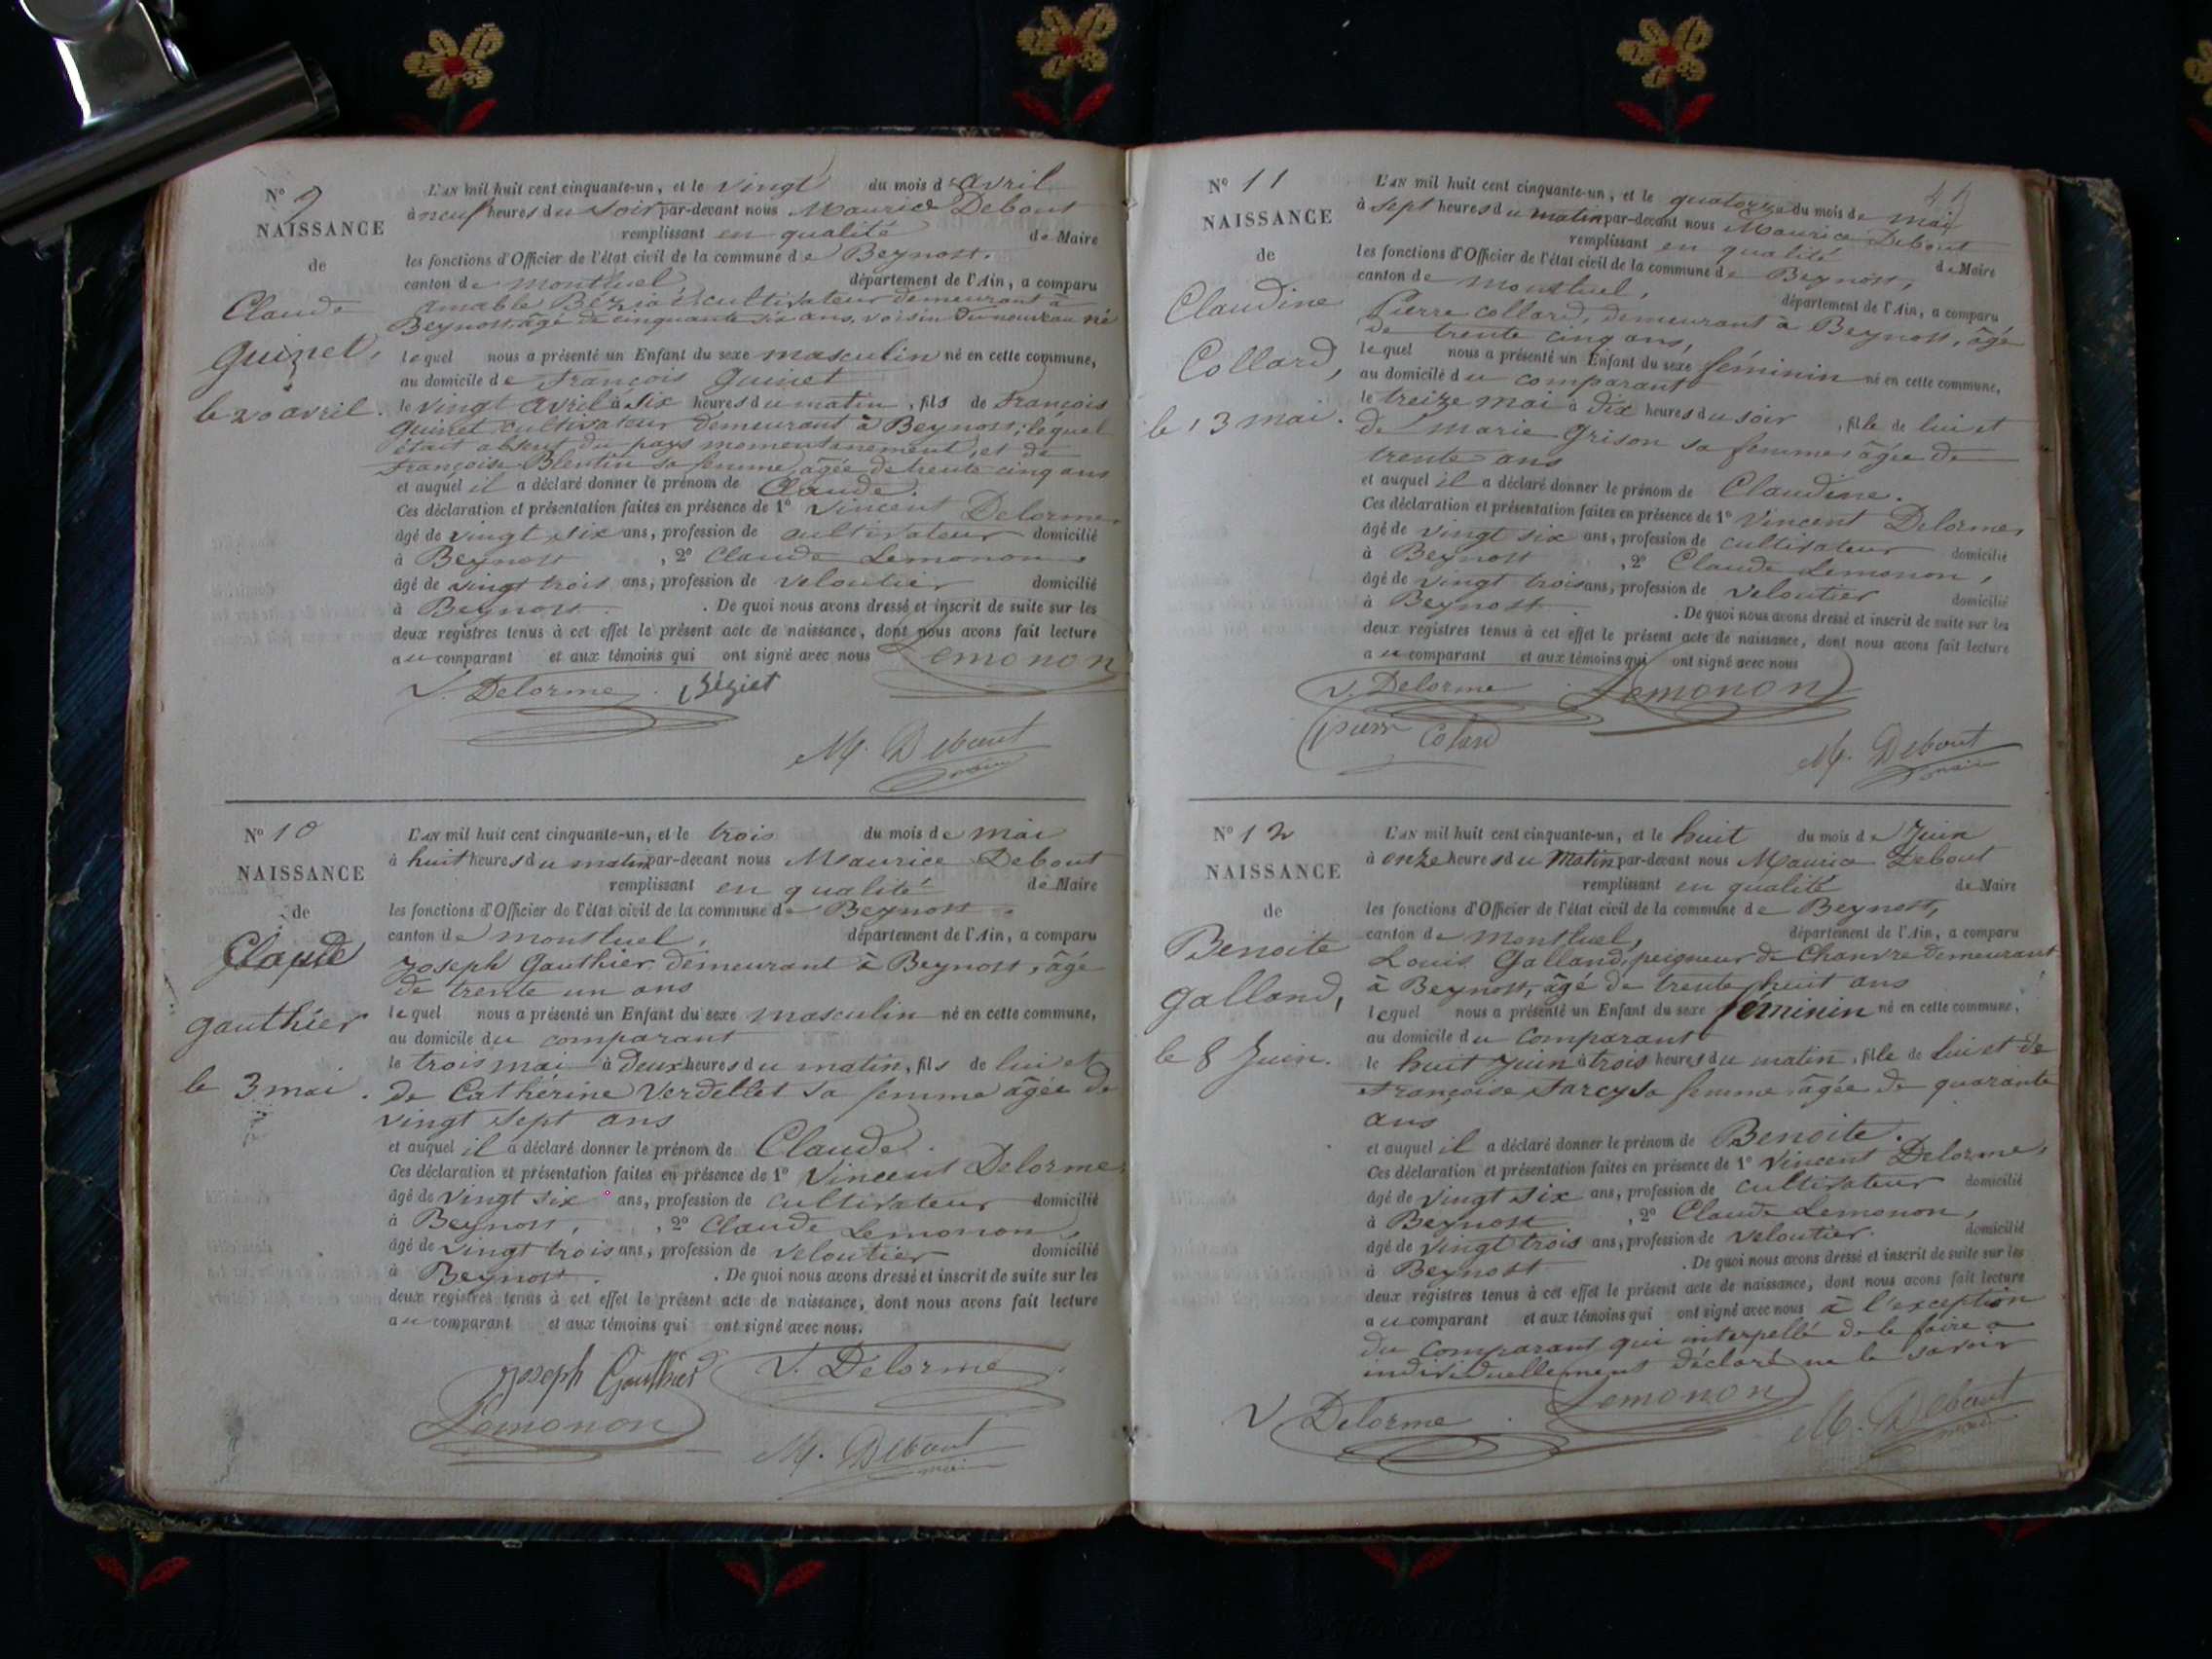 N° 9
NAISSANCE
de
Claude
Guinet,
le 20 avril.
L'AN mil huit cent cinquante-un, et le vingt du mois d'avril
à neuf heures du soir par-devant nous Maurice Debout
remplissant en qualité de Maire
les fonctions d'Officier de l'état civil de la commune de Beynost.
canton de montluel département de l'Ain, a comparu
amable cultivateur demeurant à
Beynost, âgé de cinquante six ans, voisin du nouveau né
lequel nous a présenté un Enfant du sexe masculin né en cette commune,
au domicile de François Guinet
le vingt avril à six heures du matin, fils de François
Guinet cultivateur demeurant à Beynost, lequel
était absent du pays momentanement, et de
Françoise Blentin sa femme, âgée de trente cinq ans
et auquel il a déclaré donner le prénom de Claude.
Ces déclaration et présentation faites en présence de 1° Vincent Delorme,
âgé de vingt six ans, profession de cultivateur domicilié
à Beynost, 2° Claude Lemonon,
âgé de vingt trois ans, profession de veloutier domicilié
à Beynost. De quoi nous avons dressé et inscrit de suite sur les
deux registres tenus à cet effet le présent acte de naissance, dont nous avons fait lecture
au comparant et aux témoins qui ont signé avec nous Lemonon
V. Delorme Béziat
M. Debout
maire
N° 10
NAISSANCE
de
Claude
Gauthier
le 3 mai.
L'AN mil huit cent cinquante-un, et le trois du mois de mai
à huit heures du matin par-devant nous Maurice Debout
remplissant en qualité de Maire
les fonctions d'Officier de l'état civil de la commune de Beynost.
canton de montluel, département de l'Ain, a comparu
Joseph Gauthier demeurant à Beynost, âgé
de trente un ans
lequel nous a présenté un Enfant du sexe masculin né en cette commune,
au domicile du comparant
le trois mai à deux heures du matin, fils de lui et
de Cathérine Verdellet sa femme âgée de
vingt sept ans
et auquel il a déclaré donner le prénom de Claude.
Ces déclaration et présentation faites en présence de 1° Vincent Delorme,
âgé de vingt six ans, profession de cultivateur domicilié
à Beynost, 2° Claude Lemonon,
âgé de vingt trois ans, profession de veloutier domicilié
à Beynost. De quoi nous avons dressé et inscrit de suite sur les
deux registres tenus à cet effet le présent acte de naissance, dont nous avons fait lecture
au comparant et aux témoins qui ont signé avec nous.
Joseph Gauthier V. Delorme
Lemonon
M. Debout
maire
N° 11
NAISSANCE
de
Claudine
Collard,
le 13 mai.
L'AN mil huit cent cinquante-un, et le quatorze du mois de mai
à sept heures du matin par-devant nous Maurice Debout
remplissant en qualité de Maire
les fonctions d'Officier de l'état civil de la commune de Beynost,
canton de montluel, département de l'Ain, a comparu
Pierre Collard, demeurant à Beynost, âgé
de trente cinq ans,
lequel nous a présenté un Enfant du sexe féminin né en cette commune,
au domicile du comparant
le treize mai à dix heures du soir, fille de lui et
de marie Grison sa femme, âgée de
trente ans
et auquel il a déclaré donner le prénom de Claudine.
Ces déclaration et présentation faites en présence de 1° Vincent Delorme,
âgé de vingt six ans, profession de cultivateur domicilié
à Beynost, 2° Claude Lemonon,
âgé de vingt trois ans, profession de veloutier domicilié
à Beynost. De quoi nous avons dressé et inscrit de suite sur les
deux registres tenus à cet effet le présent acte de naissance, dont nous avons fait lecture
au comparant et aux témoins qui ont signé avec nous
V. Delorme. Lemonon
pierr Colard
M. Debout
maire
N° 12
NAISSANCE
de
Benoite
Galland,
le 8 Juin.
L'AN mil huit cent cinquante-un, et le huit du mois de Juin
à onze heures du Matin par-devant nous Maurice Debout
remplissant en qualité de Maire
les fonctions d'Officier de l'état civil de la commune de Beynost,
canton de Montluel, département de l'Ain, a comparu
Louis Galland, peigneur de Chanvre demeurant
à Beynost, âgé de trente huit ans
lequel nous a présenté un Enfant du sexe féminin né en cette commune,
au domicile du Comparant
le huit Juin à trois heures du matin, fille de lui et de
Françoise Sarcy sa femme, âgée de quarante
ans
et auquel il a déclaré donner le prénom de Benoite.
Ces déclaration et présentation faites en présence de 1° Vincent Delorme,
âgé de vingt six ans, profession de cultivateur domicilié
à Beynost, 2° Claude Lemonon,
âgé de vingt trois ans, profession de veloutier. domicilié
à Beynost. De quoi nous avons dressé et inscrit de suite sur les
deux registres tenus à cet effet le présent acte de naissance, dont nous avons fait lecture
au comparant et aux témoins qui ont signé avec nous à l'exception
du comparant qui interpellé de le faire a
individuellement déclaré ne le savoir
V Delorme. Lemonon
M. Debout
maire